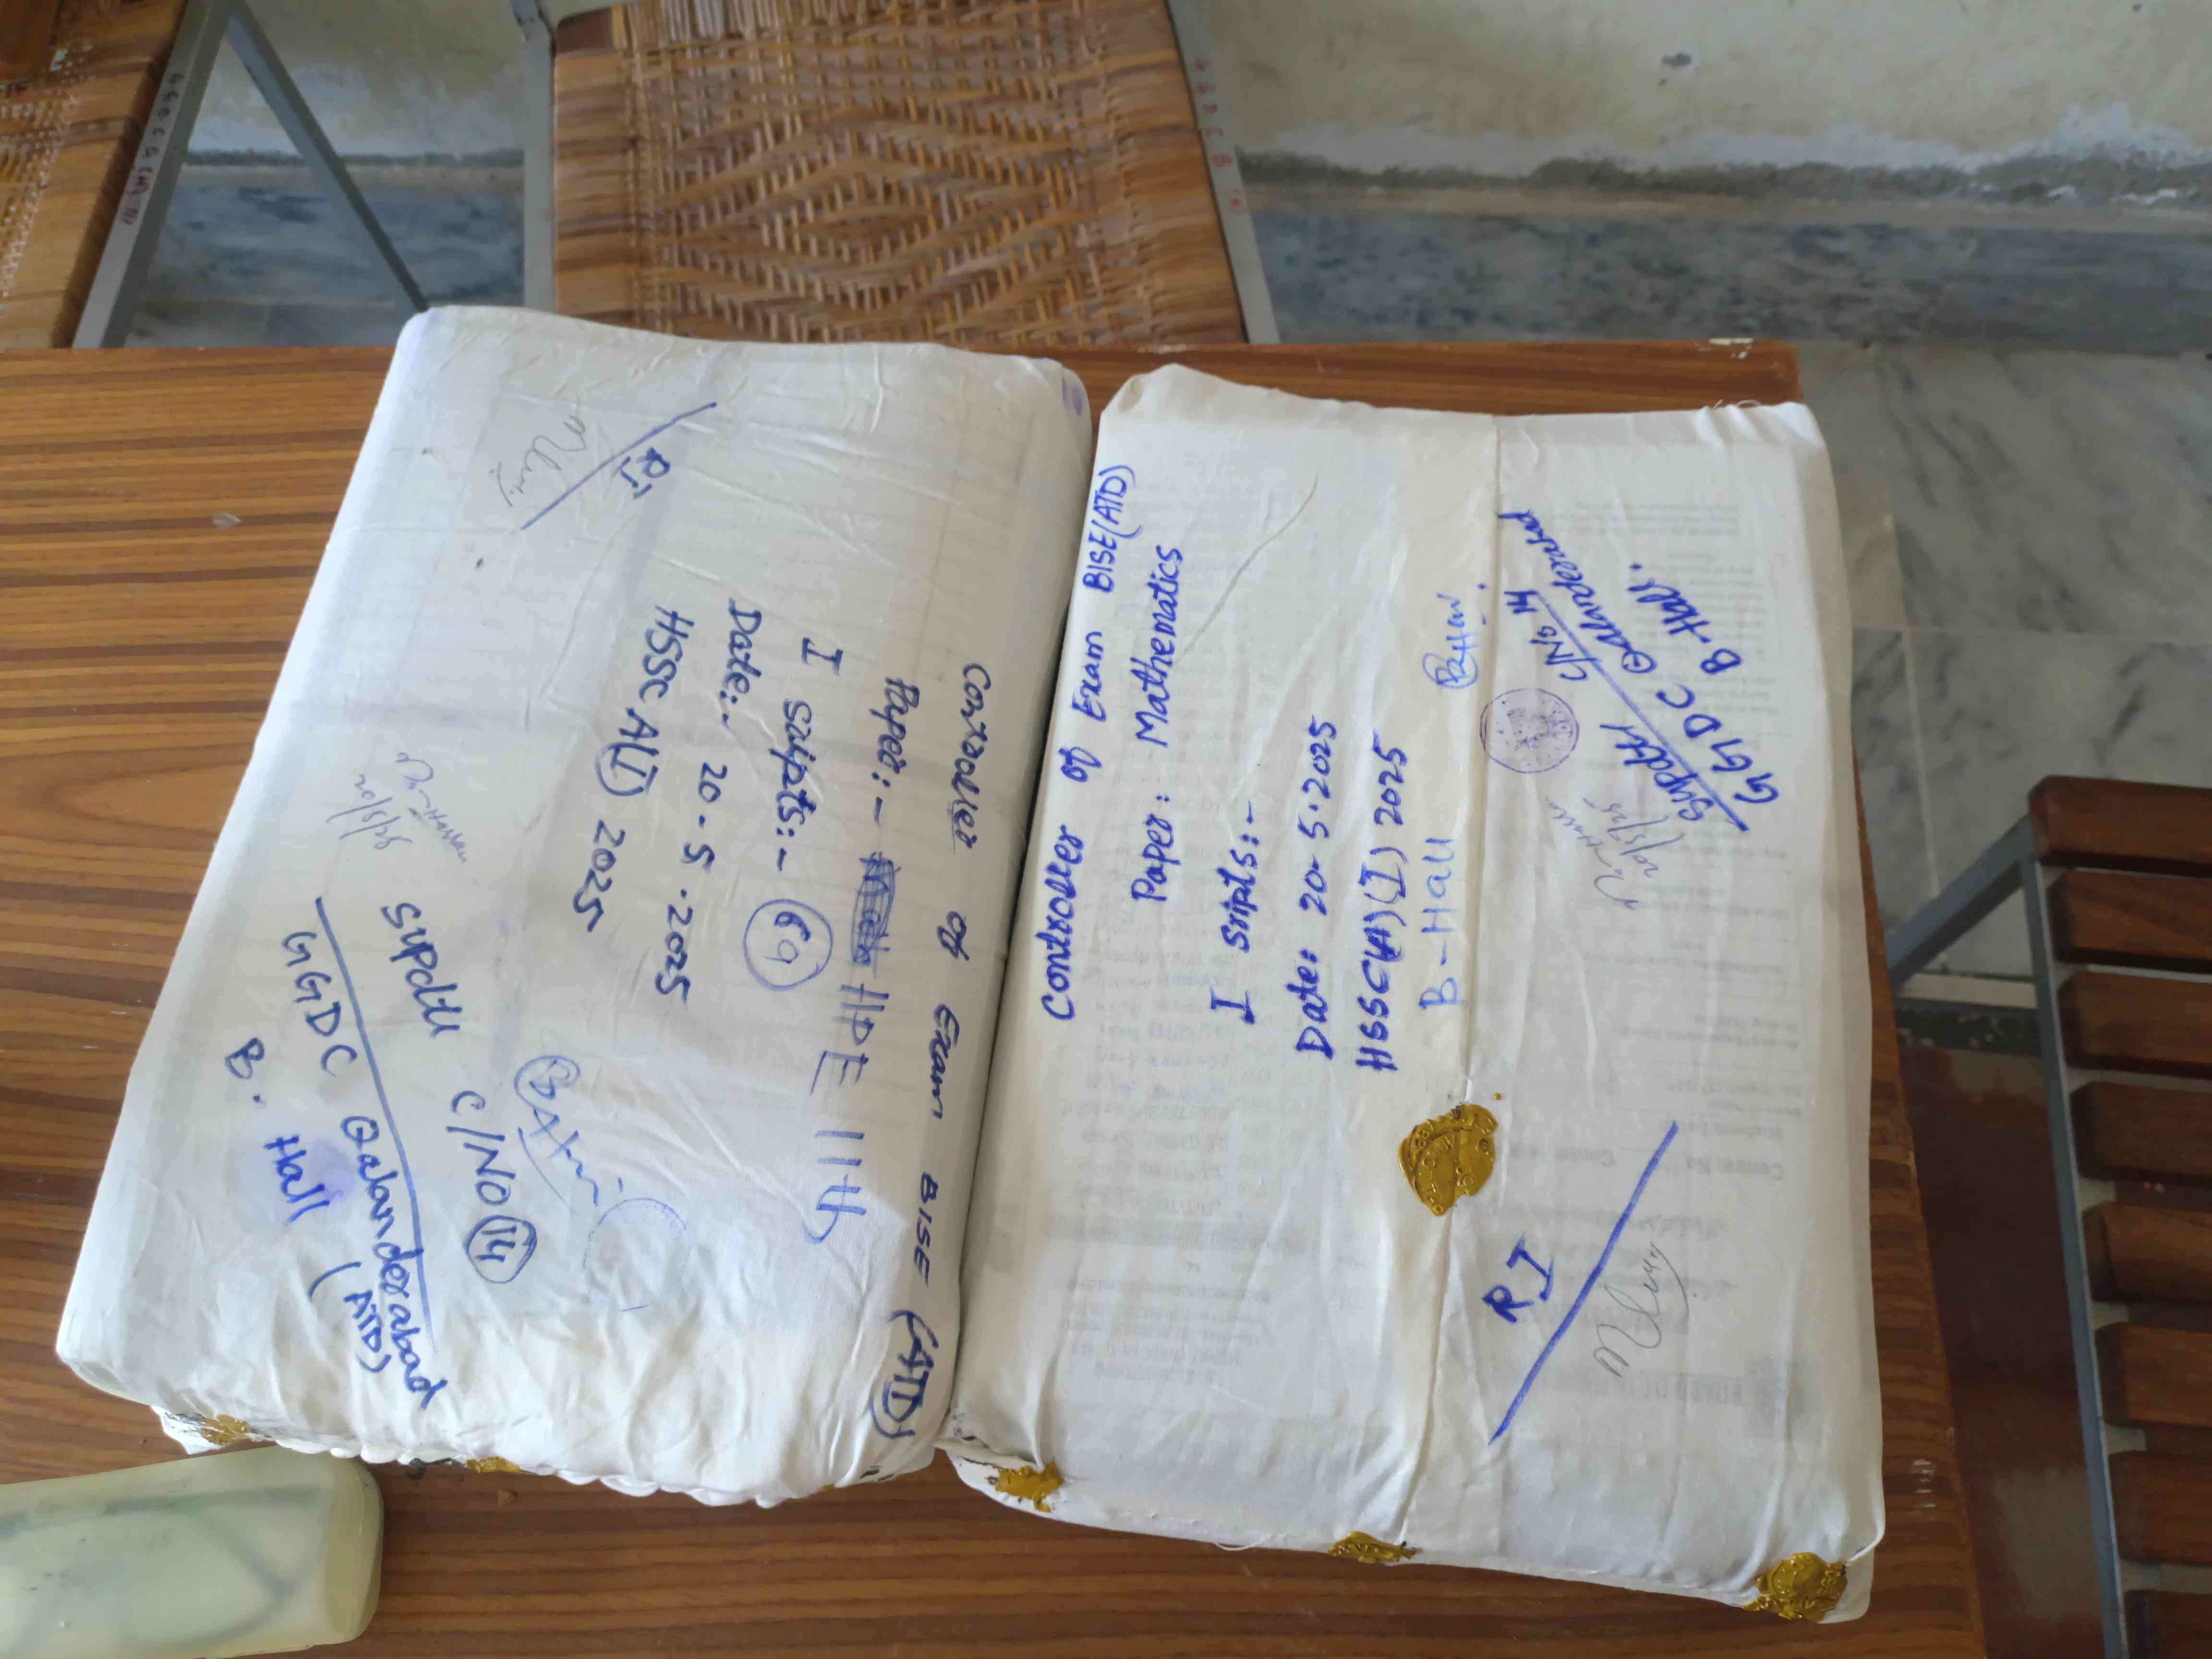 Controller of Exam BISE (ATD)
Paper:- HPE 11th
I scripts:- 69
Date:- 20-5-2025
HSSC A(I) 2025
RI
Supdtt C/NO 14
GGDC Qalanderabad
(ATD)
B. Hall
Controller of Exam BISE(ATD)
Paper: Mathematics
I sripts:-
Date: 20-5-2025
HSSC(A)(I) 2025
B-Hall
Supdtt C/No 14
GGDC Qalanderabad
B. Hall.
20/5/25
RI